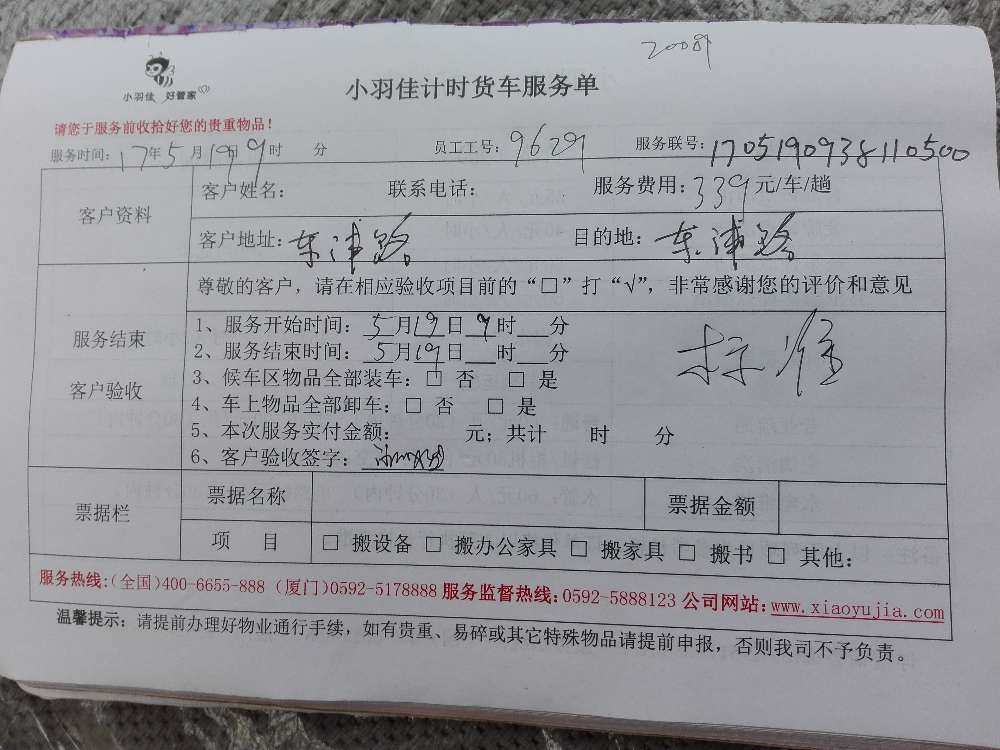 2008
小羽佳 好管家
小羽佳计时货车服务单
请您于服务前收拾好您的贵重物品！
服务时间：17年5月19日9时 分 员工工号：9629 服务联号：1705190938110500
客户资料
客户姓名： 联系电话： 服务费用：339元/车/趟
客户地址：东浦路 目的地：东浦路
服务结束
客户验收
尊敬的客户，请在相应验收项目前的“□”打“√”，非常感谢您的评价和意见
1、服务开始时间：5月19日9时 分
2、服务结束时间：5月19日 时 分
标准
3、候车区物品全部装车：□ 否 □ 是
4、车上物品全部卸车：□ 否 □ 是
5、本次服务实付金额： 元；共计 时 分
6、客户验收签字：
票据栏
票据名称 票据金额
项 目 □ 搬设备 □ 搬办公家具 □ 搬家具 □ 搬书 □ 其他：
服务热线:(全国)400-6655-888 (厦门)0592-5178888 服务监督热线:0592-5888123 公司网站:www.xiaoyujia.com
温馨提示：请提前办理好物业通行手续，如有贵重、易碎或其它特殊物品请提前申报，否则我司不予负责。